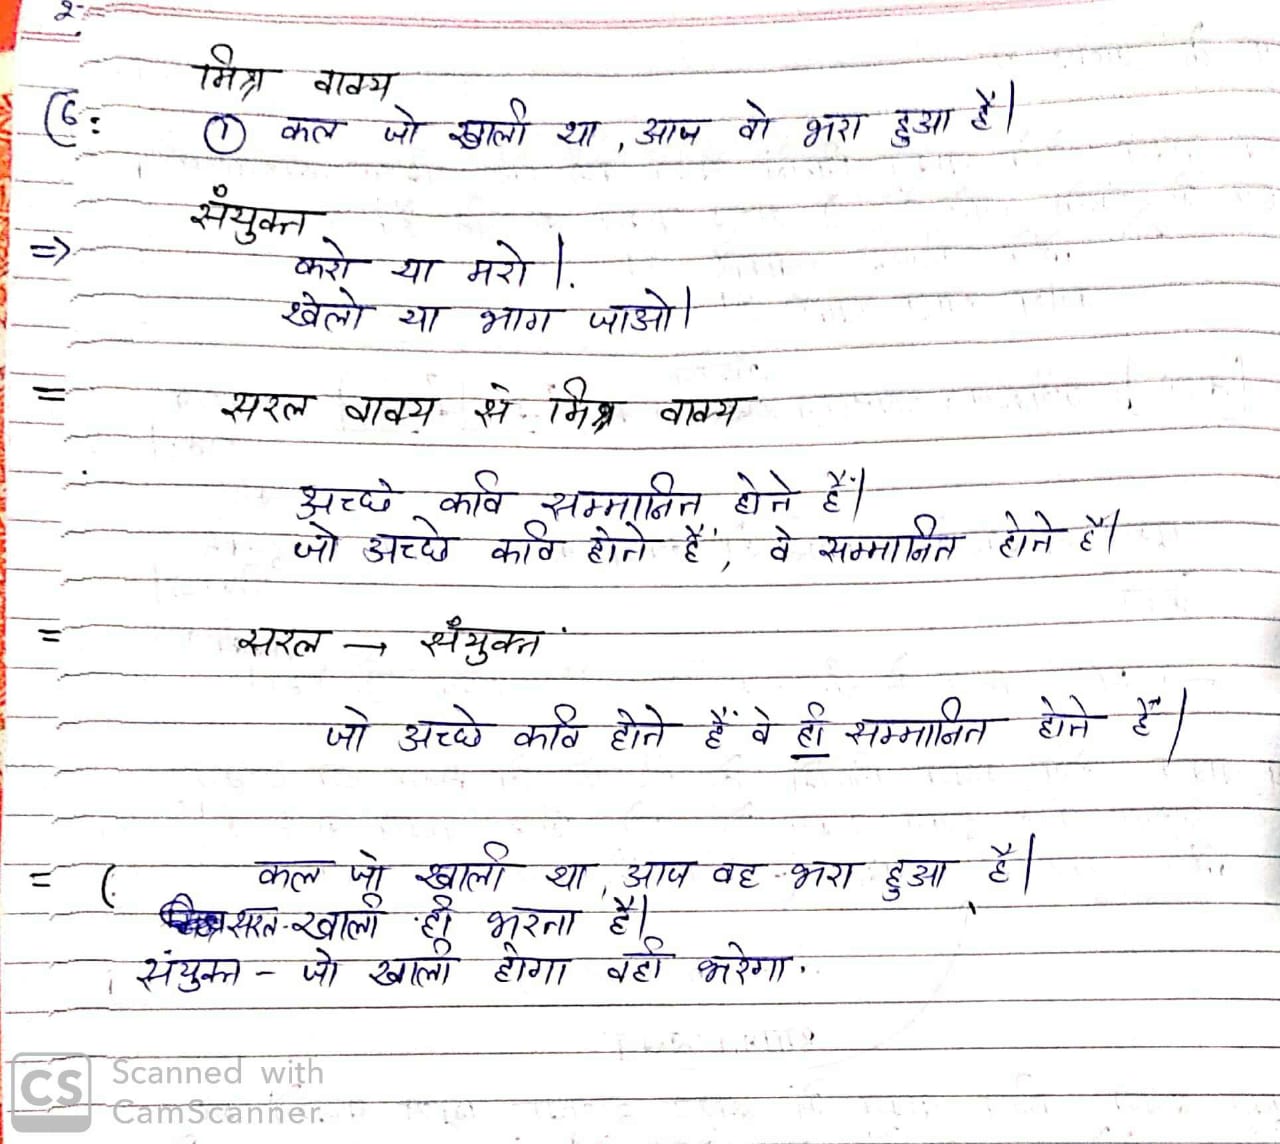 2
मिश्र वाक्य
6: ① कल जो खाली था, आज वो भरा हुआ है।
संयुक्त
=> करो या मरो।
खेलो या भाग जाओ।
= सरल वाक्य से मिश्र वाक्य
अच्छे कवि सम्मानित होते हैं।
जो अच्छे कवि होते हैं, वे सम्मानित होते हैं।
= सरल → संयुक्त
जो अच्छे कवि होते हैं वे ही सम्मानित होते हैं।
= ( कल जो खाली था, आज वह भरा हुआ है।
सरल - खाली ही भरता है।
संयुक्त - जो खाली होगा वही भरेगा.
CS Scanned with
CamScanner